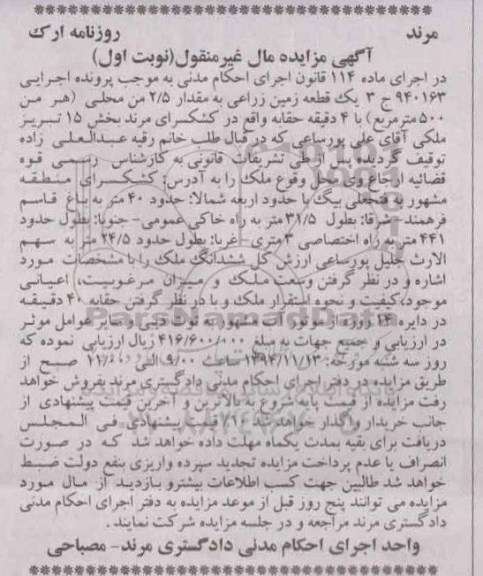 مرند روزنامه ارک
آگهی مزایده مال غیرمنقول(نوبت اول)
در اجرای ماده ۱۱۴ قانون اجرای احکام مدنی به موجب پرونده اجرایی
۹۴۰۱۶۳ ج ۳ یک قطعه زمین زراعی به مقدار ۲/۵ من محلی (هر من
۵۰۰ مترمربع) با ۴ دقیقه حقابه واقع در کشکسرای مرند بخش ۱۵ تبریز
ملکی آقای علی پورساعی که در قبال طلب خانم رقیه عبدالعلی زاده
توقیف گردیده پس از طی تشریفات قانونی به کارشناس رسمی قوه
قضائیه ارجاع وی محل وقوع ملک را به آدرس: کشکسرای منطقه
مشهور به فتحعلی بیگ با حدود اربعه شمالا: حدود ۴۰ متر به باغ قاسم
فرهمند- شرقا: بطول ۳۱/۵ متر به راه خاکی عمومی- جنوبا: بطول حدود
۴۴۱ متر به راه اختصاصی ۳ متری- غربا: بطول حدود ۲۴/۵ متر به سهم
الارث جلیل پورساعی ارزش کل ششدانگ ملک را با مشخصات مورد
اشاره و در نظر گرفتن وسعت ملک و میزان مرغوبیت، اعیانی
موجود، کیفیت و نحوه استقرار ملک و با در نظر گرفتن حقابه ۴۰ دقیقه
در دایره ۱۴ روزه از موتور آب مشهور به توت دیبی و سایر عوامل موثر
در ارزیابی و جمیع جهات به مبلغ ۴۱۶/۶۰۰/۰۰۰ ریال ارزیابی نموده که
روز سه شنبه مورخه: ۱۳۹۴/۱۱/۱۳ ساعت ۹/۰۰ الی ۱۱/۰۰ صبح از
طریق مزایده در دفتر اجرای احکام مدنی دادگستری مرند بفروش خواهد
رفت مزایده از قیمت پایه شروع به بالاترین و آخرین قیمت پیشنهادی از
جانب خریدار واگذار خواهد شد قیمت پیشنهادی فی المجلس
دریافت برای بقیه بمدت یکماه مهلت داده خواهد شد که در صورت
انصراف یا عدم پرداخت مزایده تجدید سپرده واریزی بنفع دولت ضبط
خواهد شد طالبین جهت کسب اطلاعات بیشتر و بازدید از مال مورد
مزایده می توانند پنج روز قبل از موعد مزایده به دفتر اجرای احکام مدنی
دادگستری مرند مراجعه و در جلسه مزایده شرکت نمایند.
واحد اجرای احکام مدنی دادگستری مرند- مصباحی
ParsNamadData